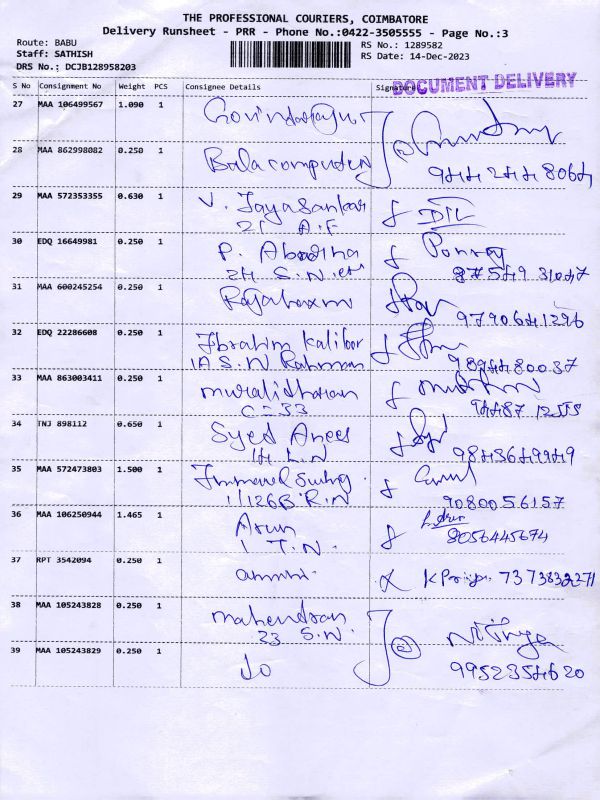 THE PROFESSIONAL COURIERS, COIMBATORE
Delivery Runsheet - PRR - Phone No.:0422-3505555 - Page No.:3
Route: BABU
Staff: SATHISH
DRS No.: DCJB128958203
RS No.: 1289582
RS Date: 14-Dec-2023
DOCUMENT DELIVERY
S No Consignment No Weight PCS Consignee Details Signature
27 MAA 106499567 1.090 1
28 MAA 862998082 0.250 1 Bala computer
29 MAA 572353355 0.630 1 V. Jayasankar
21 A.F
30 EDQ 16649981 0.250 1 P.
24 S.N.
31 MAA 600245254 0.250 1
9790641296
32 EDQ 22286608 0.250 1 Ibrahim
1A S.N Rahman 9894480037
33 MAA 863003411 0.250 1 muralidharan
C=33
34 TNJ 898112 0.650 1 Syed Anees
14 L.N 9843649949
35 MAA 572473803 1.500 1
1/126B R.N 9080056157
36 MAA 106250944 1.465 1 Arun
1 T.N. 8056445674
37 RPT 3542094 0.250 1 ammni. K Priya. 7373832271
38 MAA 105243828 0.250 1 mahendran Nithya
23 S.N.
39 MAA 105243829 0.250 1 do 9952354620